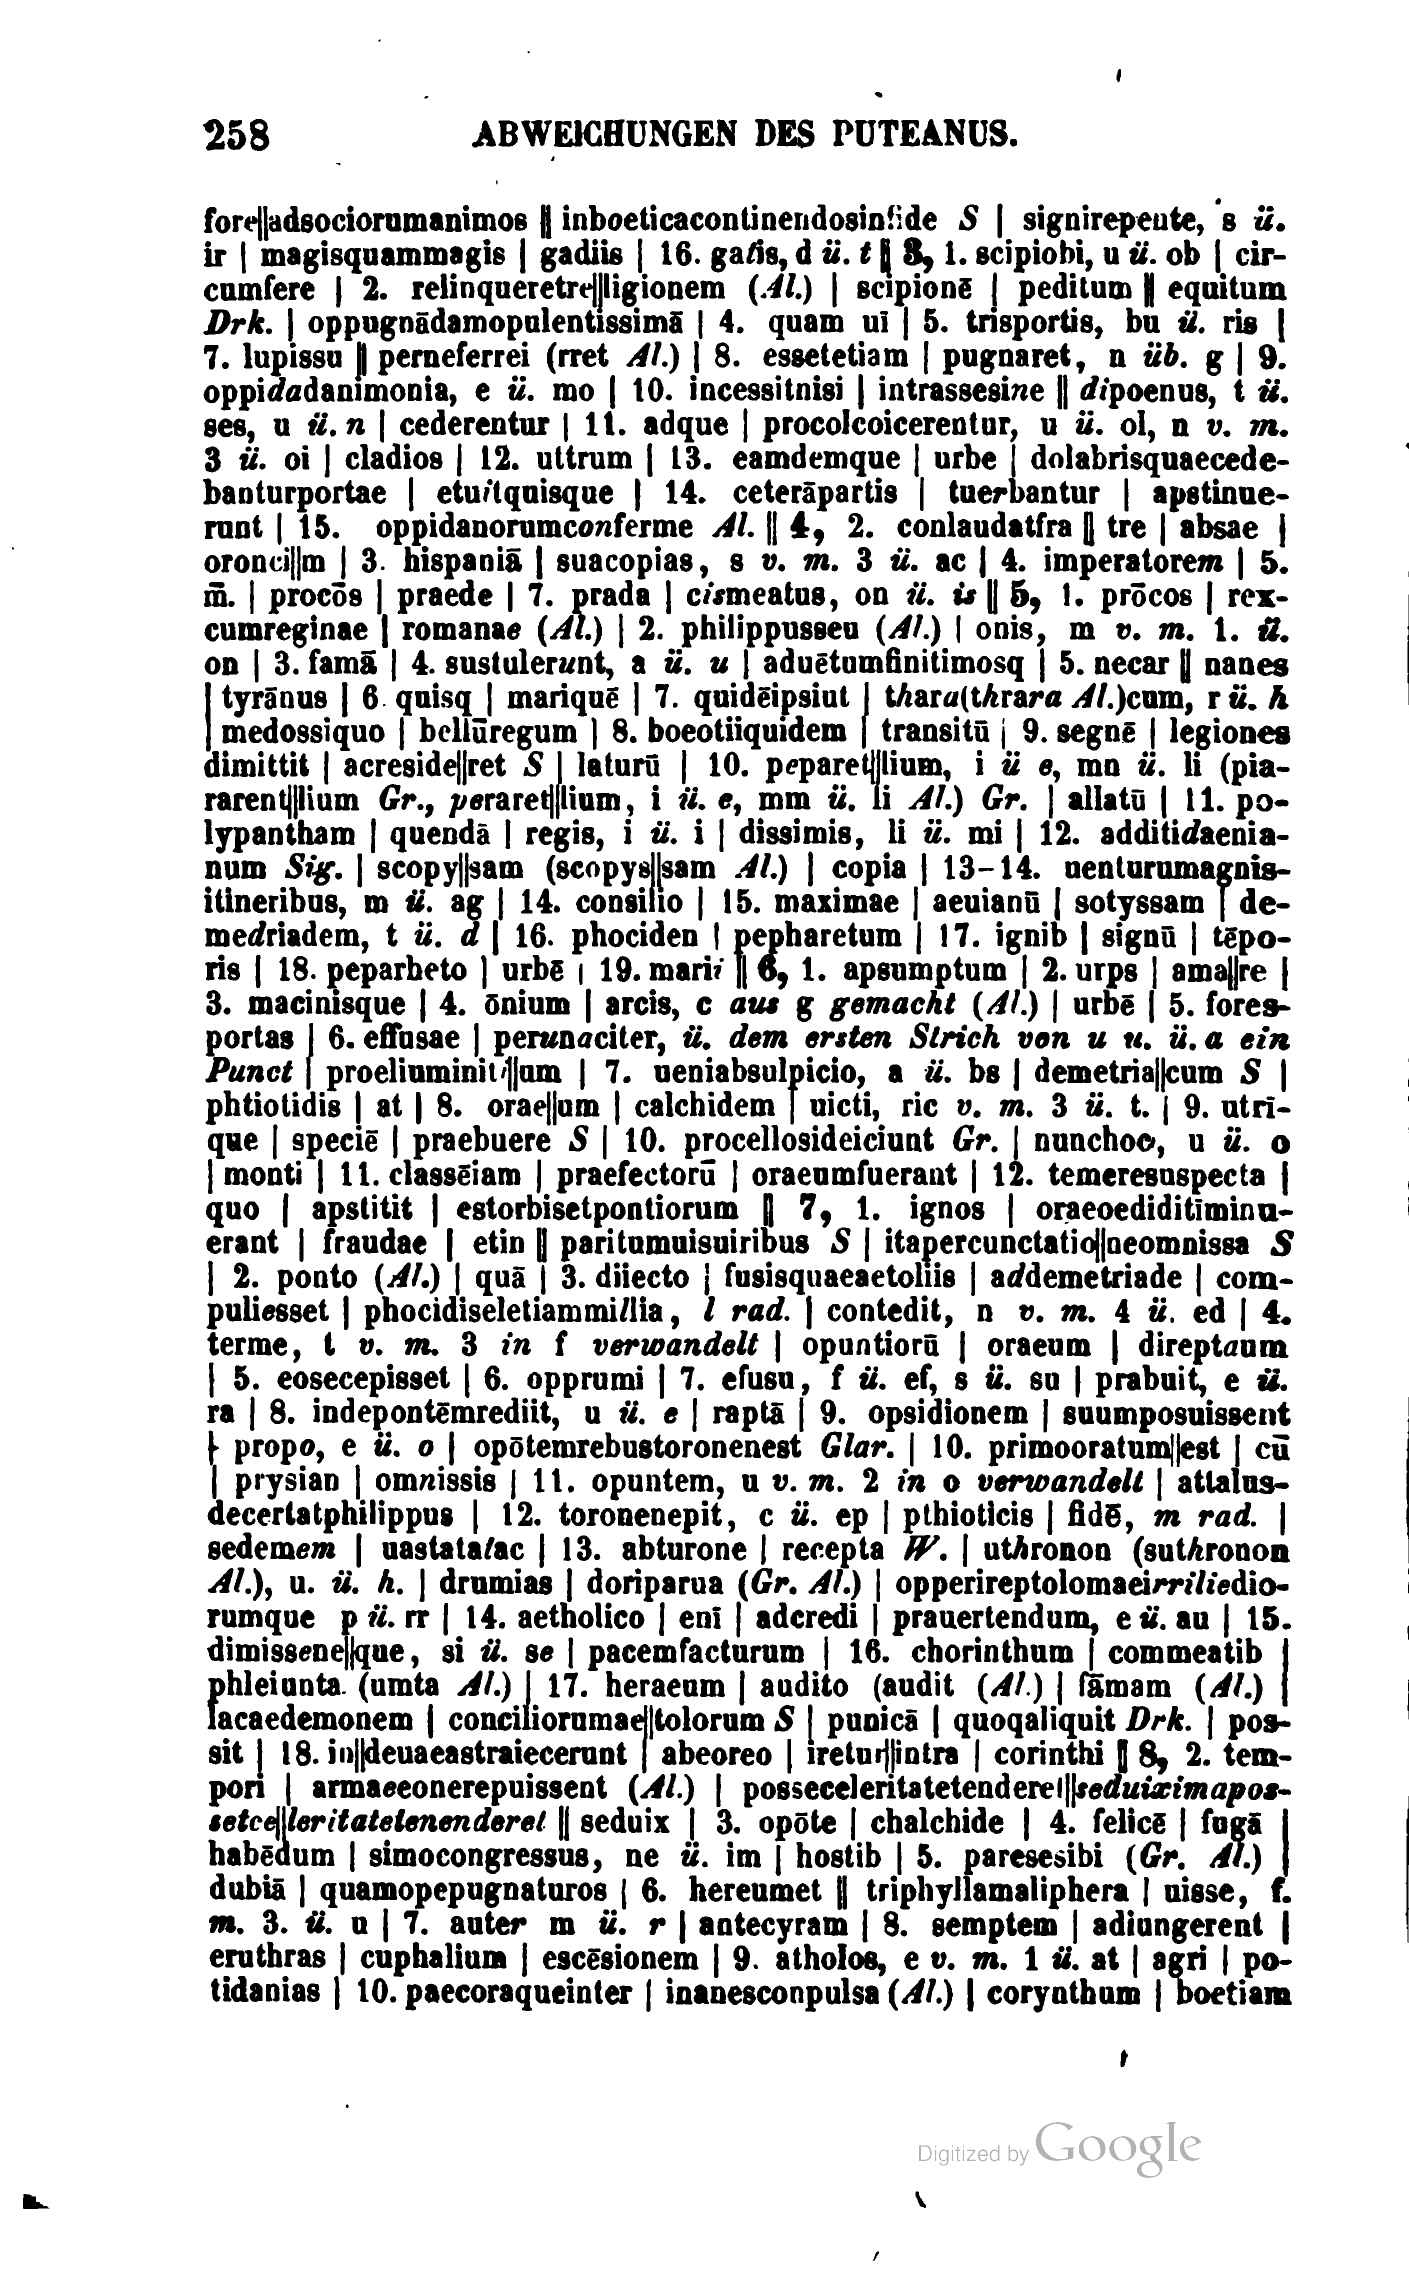 258 ABWEICHUNGEN DES PUTEANUS.
fore||adsociorumanimos || inboeticacontinendosinfide S | signirepente, s ü.
ir | magisquammagis | gadiis | 16. gatis, d ü. t || 3, 1. scipiobi, u ü. ob | cir-
cumfere | 2. relinqueretre||ligionem (Al.) | scipionē | peditum || equitum
Drk. | oppugnādamopulentissimā | 4. quam uī | 5. trisportis, bu ü. ris |
7. lupissu || perneferrei (rret Al.) | 8. essetetiam | pugnaret, n üb. g | 9.
oppidadanimonia, e ü. mo | 10. incessitnisi | intrassesine || dipoenus, t ü.
ses, u ü. n | cederentur | 11. adque | procolcoicerentur, u ü. ol, n v. m.
3 ü. oi | cladios | 12. uttrum | 13. eamdemque | urbe | dolabrisquaecede-
banturportae | etuitquisque | 14. ceterāpartis | tuerbantur | apstinue-
runt | 15. oppidanorumconferme Al. || 4, 2. conlaudatfra || tre | absae |
oronci||m | 3. hispaniā | suacopias, s v. m. 3 ü. ac | 4. imperatorem | 5.
m̄. | procōs | praede | 7. prada | cismeatus, on ü. is || 5, 1. prōcos | rex-
cumreginae | romanae (Al.) | 2. philippusseu (Al.) | onis, m v. m. 1. ü.
on | 3. famā | 4. sustulerunt, a ü. u | aduētumfinitimosq | 5. necar || nanes
| tyrānus | 6. quisq | mariquē | 7. quidēipsiut | thara(thrara Al.)cum, r ü. h
| medossiquo | bellūregum | 8. boeotiiquidem | transitū | 9. segnē | legiones
dimittit | acreside||ret S | laturū | 10. peparet||lium, i ü e, mn ü. li (pia-
rarent||lium Gr., peraret||lium, i ü. e, mm ü. li Al.) Gr. | allatū | 11. po-
lypantham | quendā | regis, i ü. i | dissimis, li ü. mi | 12. additidaenia-
num Sig. | scopy||sam (scopys||sam Al.) | copia | 13-14. uenturumagnis-
itineribus, m ü. ag | 14. consilio | 15. maximae | aeuianū | sotyssam | de-
medriadem, t ü. d | 16. phociden | pepharetum | 17. ignib | signū | tēpo-
ris | 18. peparheto | urbē | 19. marii || 6, 1. apsumptum | 2. urps | ama||re |
3. macinisque | 4. ōnium | arcis, c aus g gemacht (Al.) | urbē | 5. fores-
portas | 6. effusae | perunaciter, ü. dem ersten Strich von u u. ü. a ein
Punct | proeliuminiti||um | 7. ueniabsulpicio, a ü. bs | demetria||cum S |
phtiotidis | at | 8. orae||um | calchidem | uicti, ric v. m. 3 ü. t. | 9. utrī-
que | speciē | praebuere S | 10. procellosideiciunt Gr. | nunchoc, u ü. o
| monti | 11. classēiam | praefectorū | oraeumfuerant | 12. temeresuspecta |
quo | apstitit | estorbisetpontiorum || 7, 1. ignos | oraeoediditiminu-
erant | fraudae | etin || paritumuisuiribus S | itapercunctatio||neomnissa S
| 2. ponto (Al.) | quā | 3. diiecto | fusisquaeaetoliis | addemetriade | com-
puliesset | phocidiseletiammillia, l rad. | contedit, n v. m. 4 ü. ed | 4.
terme, t v. m. 3 in f verwandelt | opuntiorū | oraeum | direptaum
| 5. eosecepisset | 6. opprumi | 7. efusu, f ü. ef, s ü. su | prabuit, e ü.
ra | 8. indepontēmrediit, u ü. e | raptā | 9. opsidionem | suumposuissent
| propo, e ü. o | opōtemrebustoronenest Glar. | 10. primooratum||est | cū
| prysian | omnissis | 11. opuntem, u v. m. 2 in o verwandelt | attalus-
decertatphilippus | 12. toronenepit, c ü. ep | pthioticis | fidē, m rad. |
sedemem | uastatatac | 13. abturone | recepta W. | uthronon (suthronon
Al.), u. ü. h. | drumias | doriparua (Gr. Al.) | opperireptolomaeirriliedio-
rumque p ü. rr | 14. aetholico | enī | adcredi | prauertendum, e ü. au | 15.
dimissene||que, si ü. se | pacemfacturum | 16. chorinthum | commeatib |
phleiunta. (umta Al.) | 17. heraeum | audito (audit (Al.) | fāmam (Al.) |
lacaedemonem | conciliorumae||tolorum S | punicā | quoqaliquit Drk. | pos-
sit | 18. in||deuaeastraiecerunt | abeoreo | iretur||intra | corinthi || 8, 2. tem-
pori | armaeeonerepuissent (Al.) | posseceleritatetenderet||seduiximapos-
setce||leritatetenenderet || seduix | 3. opōte | chalchide | 4. felicē | fugā |
habēdum | simocongressus, ne ü. im | hostib | 5. paresesibi (Gr. Al.) |
dubiā | quamopepugnaturos | 6. hereumet || triphyllamaliphera | uisse, f.
m. 3. ü. u | 7. auter m ü. r | antecyram | 8. semptem | adiungerent |
eruthras | cuphalium | escēsionem | 9. atholos, e v. m. 1 ü. at | agri | po-
tidanias | 10. paecoraqueinter | inanesconpulsa (Al.) | corynthum | boetiam
Digitized by Google